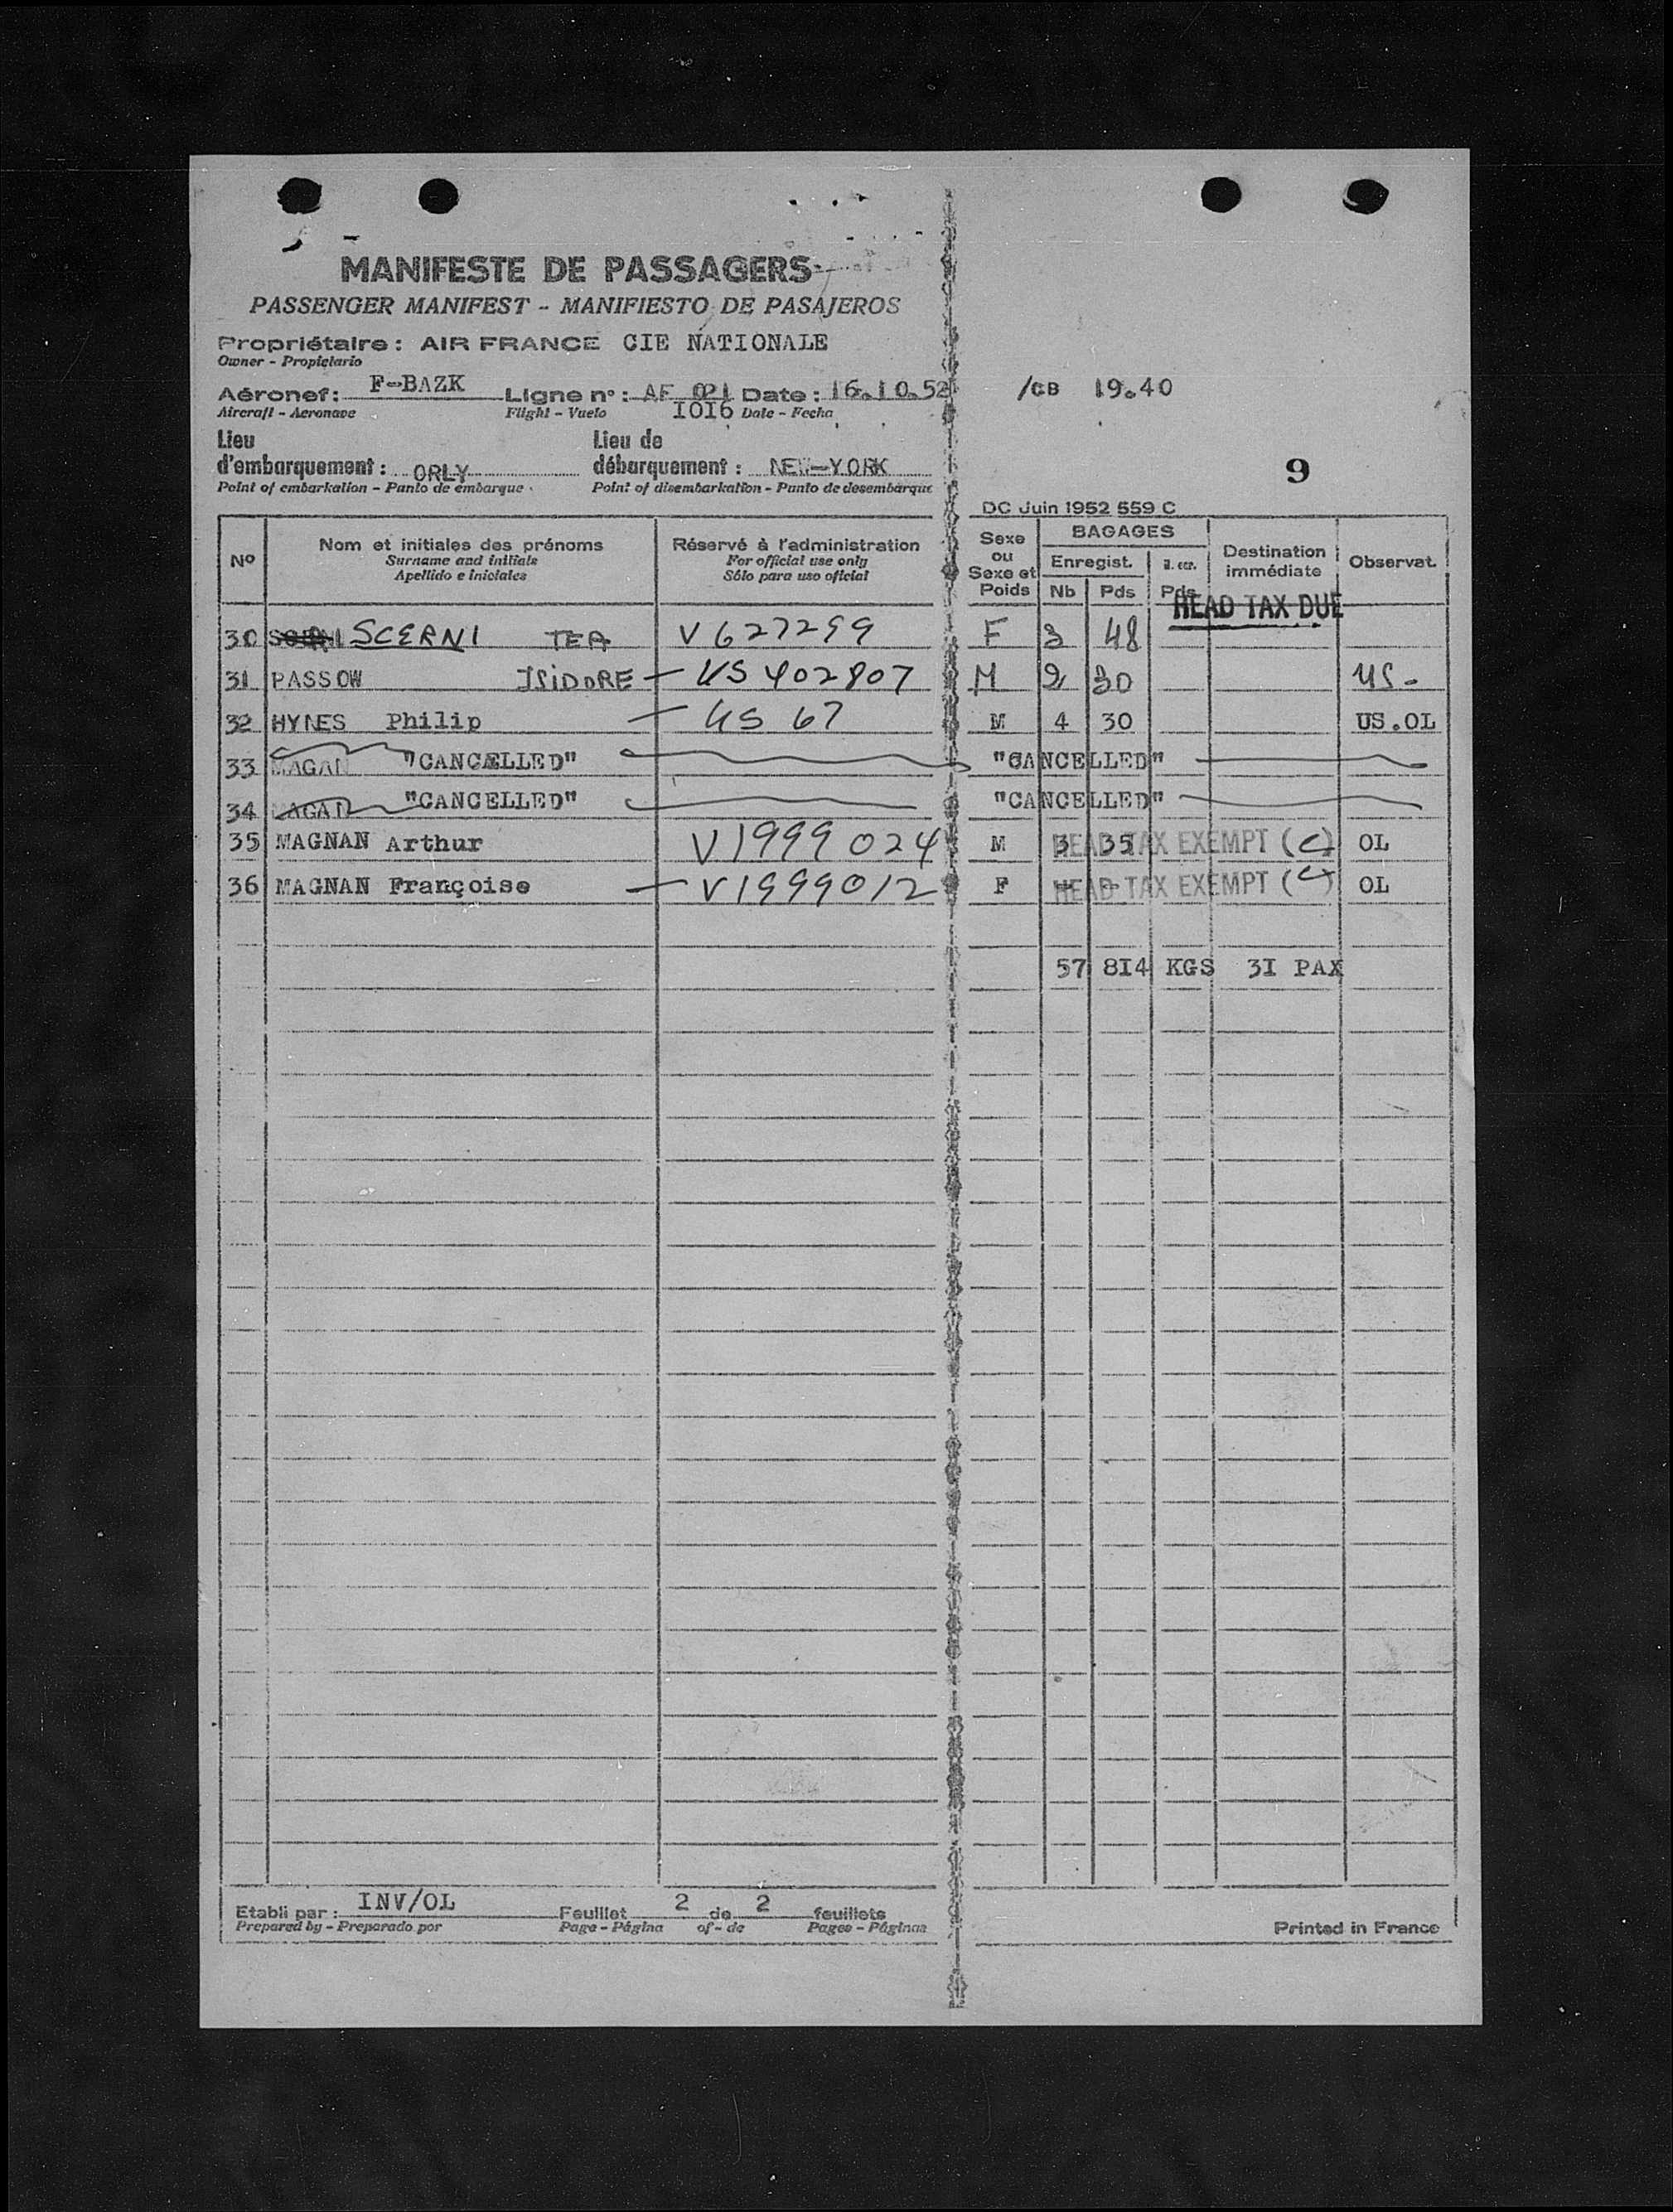 MANIFESTE DE PASSAGERS
PASSENGER MANIFEST - MANIFIESTO DE PASAJEROS
Propriétaire : AIR FRANCE CIE NATIONALE
Owner - Propietario
Aéronef : F-BAZK Ligne n° : AF 021 Date : 16.10.52 /CB 19.40
Aircraft - Aeronave Flight - Vuelo 1016 Date - Fecha
Lieu d'embarquement : ORLY Lieu de débarquement : NEW-YORK
Point of embarkation - Punto de embarque Point of disembarkation - Punto de desembarque
9
DC Juin 1952 559 C
N° Nom et initiales des prénoms Réservé à l'administration Sexe ou Sexe et Poids BAGAGES Destination immédiate Observat.
Surname and initials For official use only Enregist.
Apellido e iniciales Sólo para uso oficial Nb Pds Pds
HEAD TAX DUE
30 SCERNI TEA V 627299 F 3 48
31 PASSOW ISIDORE - US 402807 M 2 30 US-
32 HYNES Philip - US 67 M 4 30 US.OL
33 MAGAN "CANCELLED" "CANCELLED"
34 MAGAN "CANCELLED" "CANCELLED"
35 MAGNAN Arthur V1999024 M 3 35 HEAD TAX EXEMPT (C) OL
36 MAGNAN Françoise - V1999012 F - - HEAD TAX EXEMPT (C) OL
57 8I4 KGS 3I PAX
Etabli par : INV/OL Feuillet 2 de 2 feuillets
Prepared by - Preparado por Page - Página of - de Pages - Páginas
Printed in France